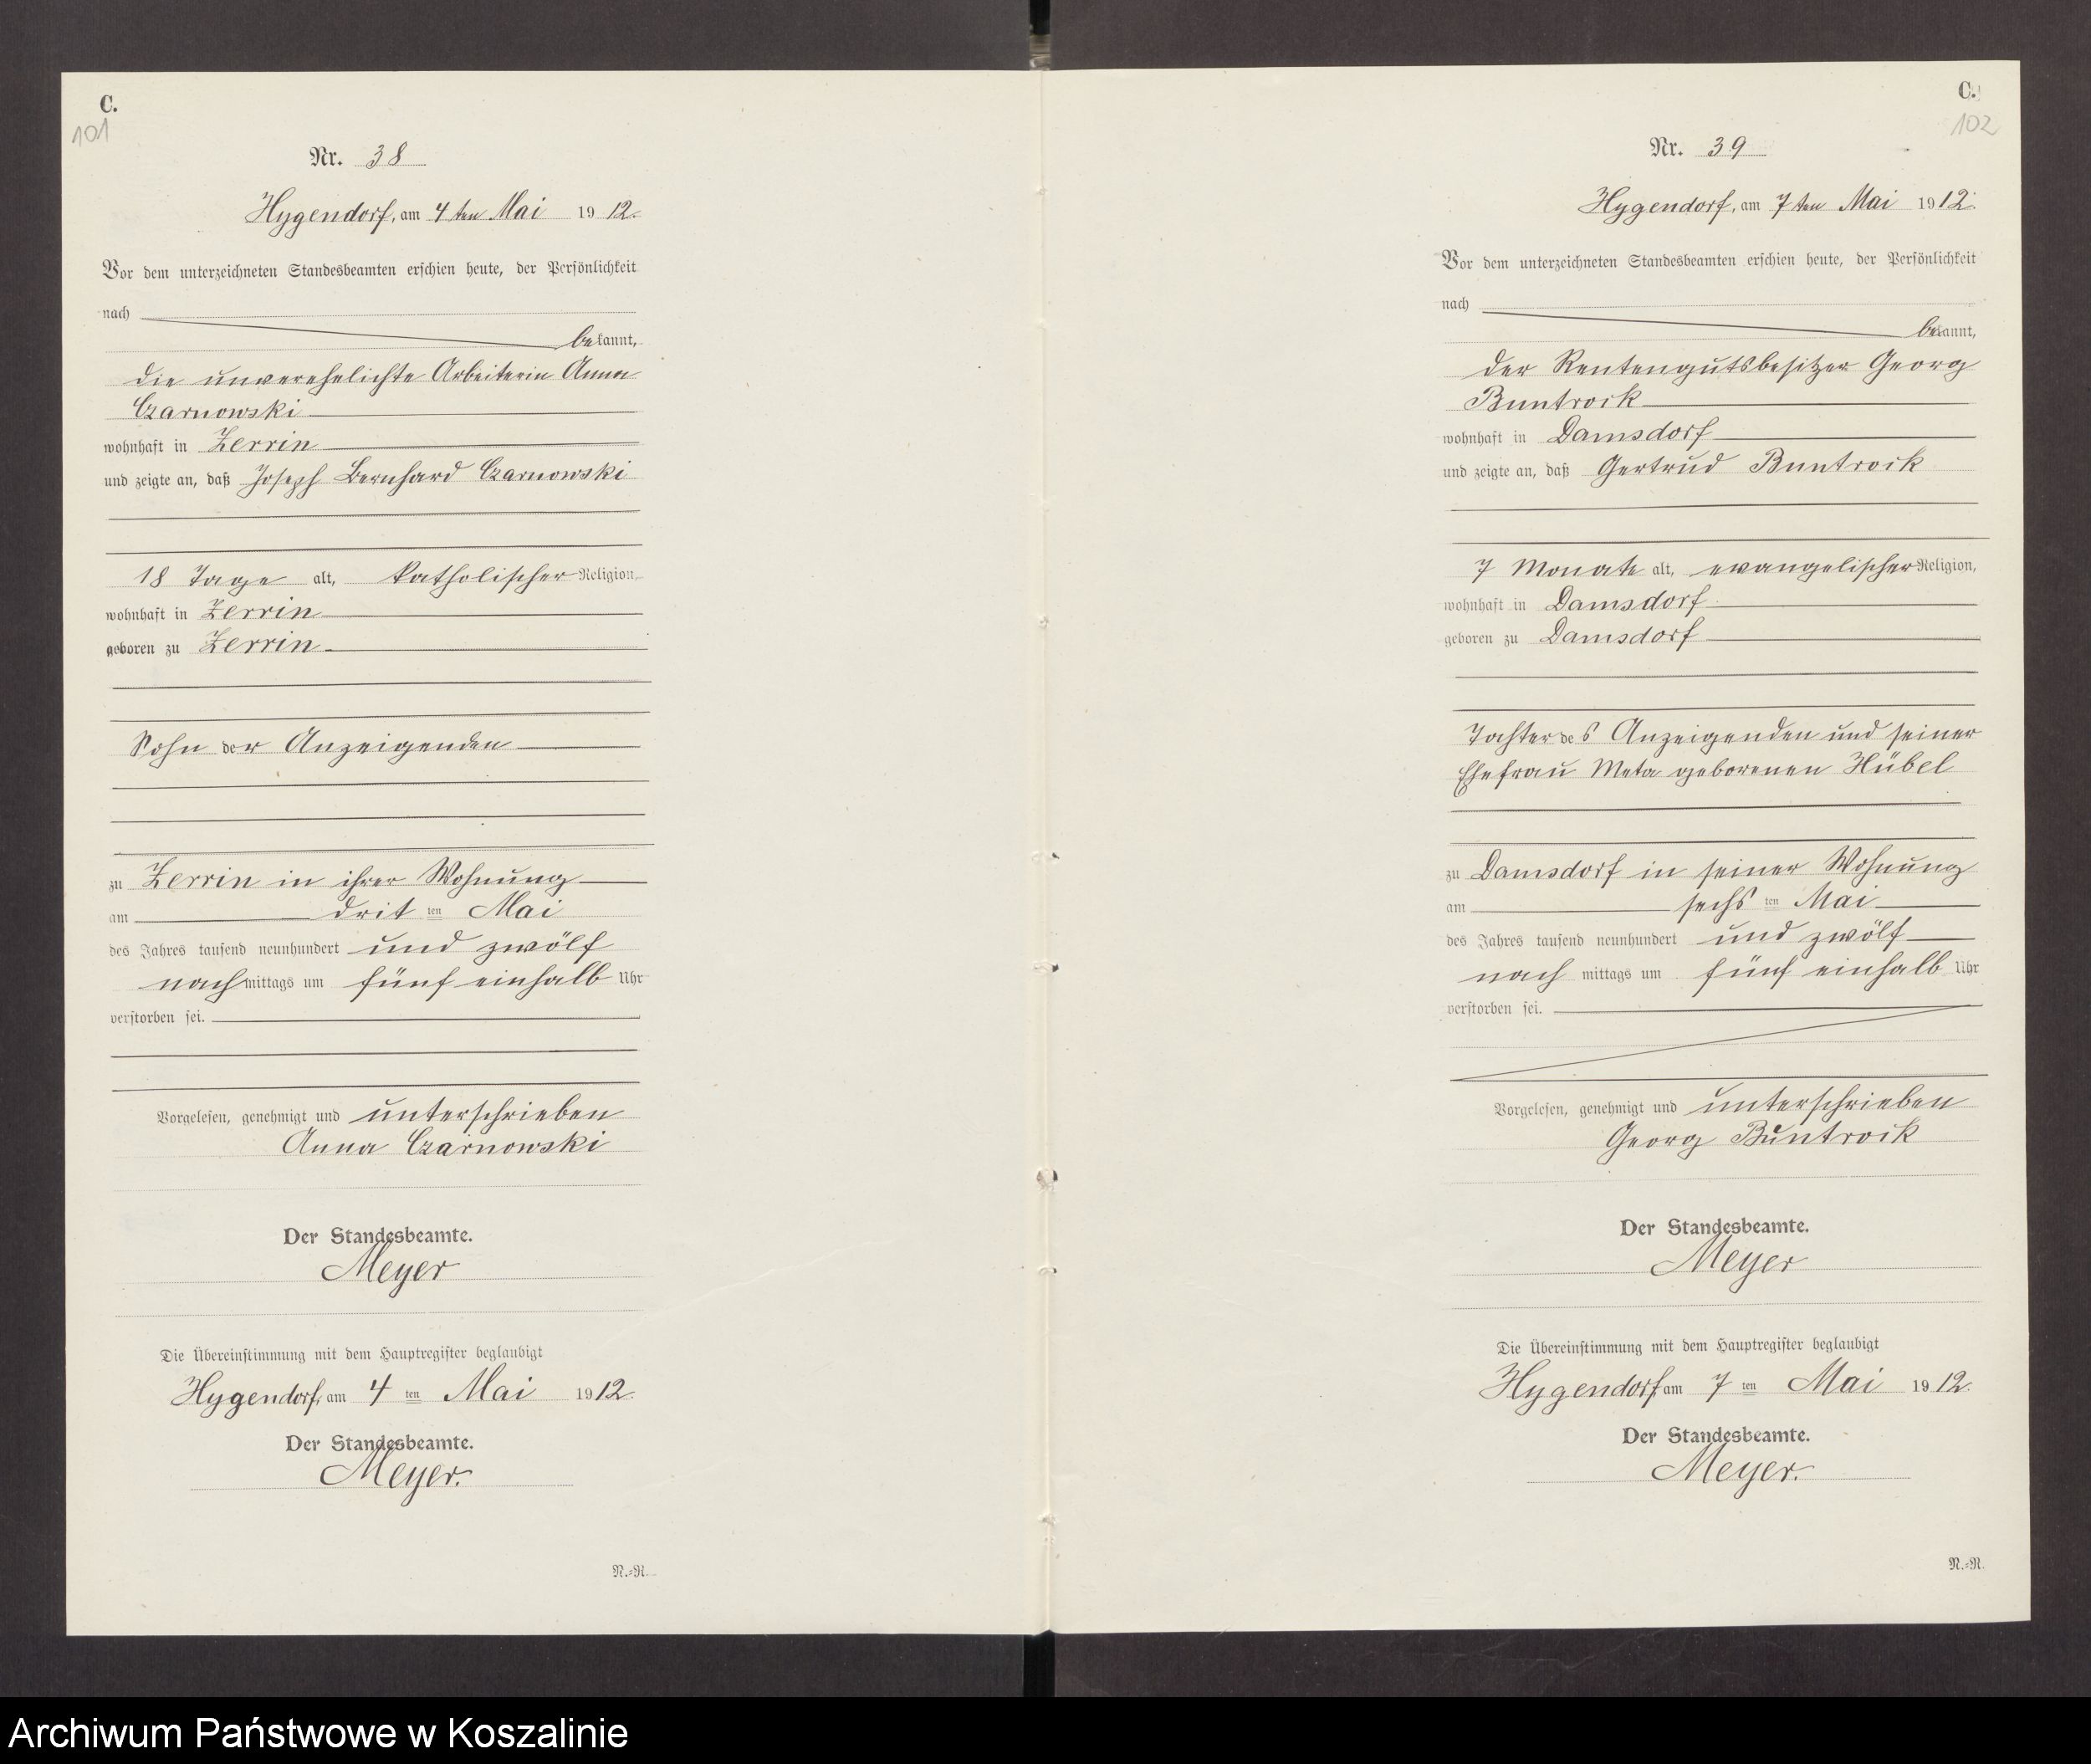 C.
101
Nr. 38
Hygendorf, am 4ten Mai 1912.
Vor dem unterzeichneten Standesbeamten erschien heute, der Persönlichkeit
nach
bekannt,
die unverehelichte Arbeiterin Anna
Czarnowski
wohnhaft in Zerrin
und zeigte an, daß Joseph Bernhard Czarnowski
18 Tage alt, katholischer Religion,
wohnhaft in Zerrin
geboren zu Zerrin
Sohn der Anzeigenden
zu Zerrin in ihrer Wohnung
am dritten Mai
des Jahres tausend neunhundert und zwölf
nachmittags um fünf einhalb Uhr
verstorben sei.
Vorgelesen, genehmigt und unterschrieben
Anna Czarnowski
Der Standesbeamte.
Meyer
Die Übereinstimmung mit dem Hauptregister beglaubigt
Hygendorf, am 4ten Mai 1912.
Der Standesbeamte.
Meyer.
N.-R.
C.
102
Nr. 39
Hygendorf, am 7ten Mai 1912.
Vor dem unterzeichneten Standesbeamten erschien heute, der Persönlichkeit
nach
bekannt,
der Rentengutsbesitzer Georg
Buntrock
wohnhaft in Damsdorf
und zeigte an, daß Gertrud Buntrock
7 Monate alt, evangelischer Religion,
wohnhaft in Damsdorf
geboren zu Damsdorf
Tochter des Anzeigenden und seiner
Ehefrau Meta geborenen Hübel
zu Damsdorf in seiner Wohnung
am sechsten Mai
des Jahres tausend neunhundert und zwölf
nachmittags um fünf einhalb Uhr
verstorben sei.
Vorgelesen, genehmigt und unterschrieben
Georg Buntrock
Der Standesbeamte.
Meyer
Die Übereinstimmung mit dem Hauptregister beglaubigt
Hygendorf am 7ten Mai 1912.
Der Standesbeamte.
Meyer.
N.-R.
Archiwum Państwowe w Koszalinie